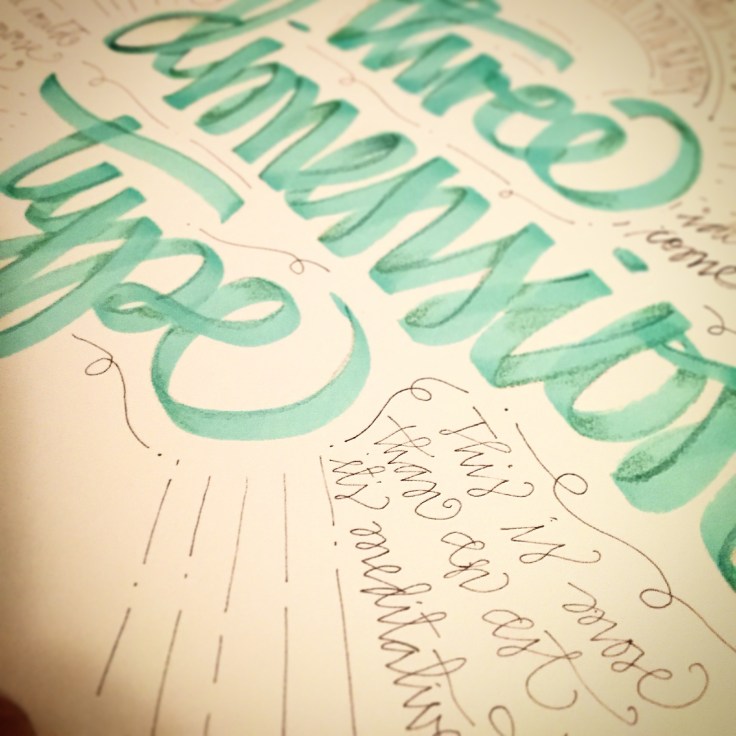 three
dimension
type
come
This is more
than an art
it's meditative